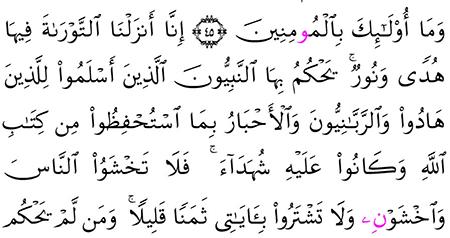 وَمَا أُوْلَـٰٓئِكَ بِالْمُومِنِينَ ۝٤٥ إِنَّا أَنزَلْنَا التَّوْرَىٰةَ فِيهَا
هُدًى وَنُورٌ ۚ يَحْكُمُ بِهَا النَّبِيُّونَ الَّذِينَ أَسْلَمُواْ لِلَّذِينَ
هَادُواْ وَالرَّبَّـٰنِيُّونَ وَالْأَحْبَارُ بِمَا اسْتُحْفِظُواْ مِن كِتَـٰبِ
اللَّهِ وَكَانُواْ عَلَيْهِ شُهَدَآءَ ۚ فَلَا تَخْشَوُاْ النَّاسَ
وَاخْشَوْنِۦ وَلَا تَشْتَرُواْ بِـَٔايَـٰتِى ثَمَنًا قَلِيلًا ۚ وَمَن لَّمْ يَحْكُم